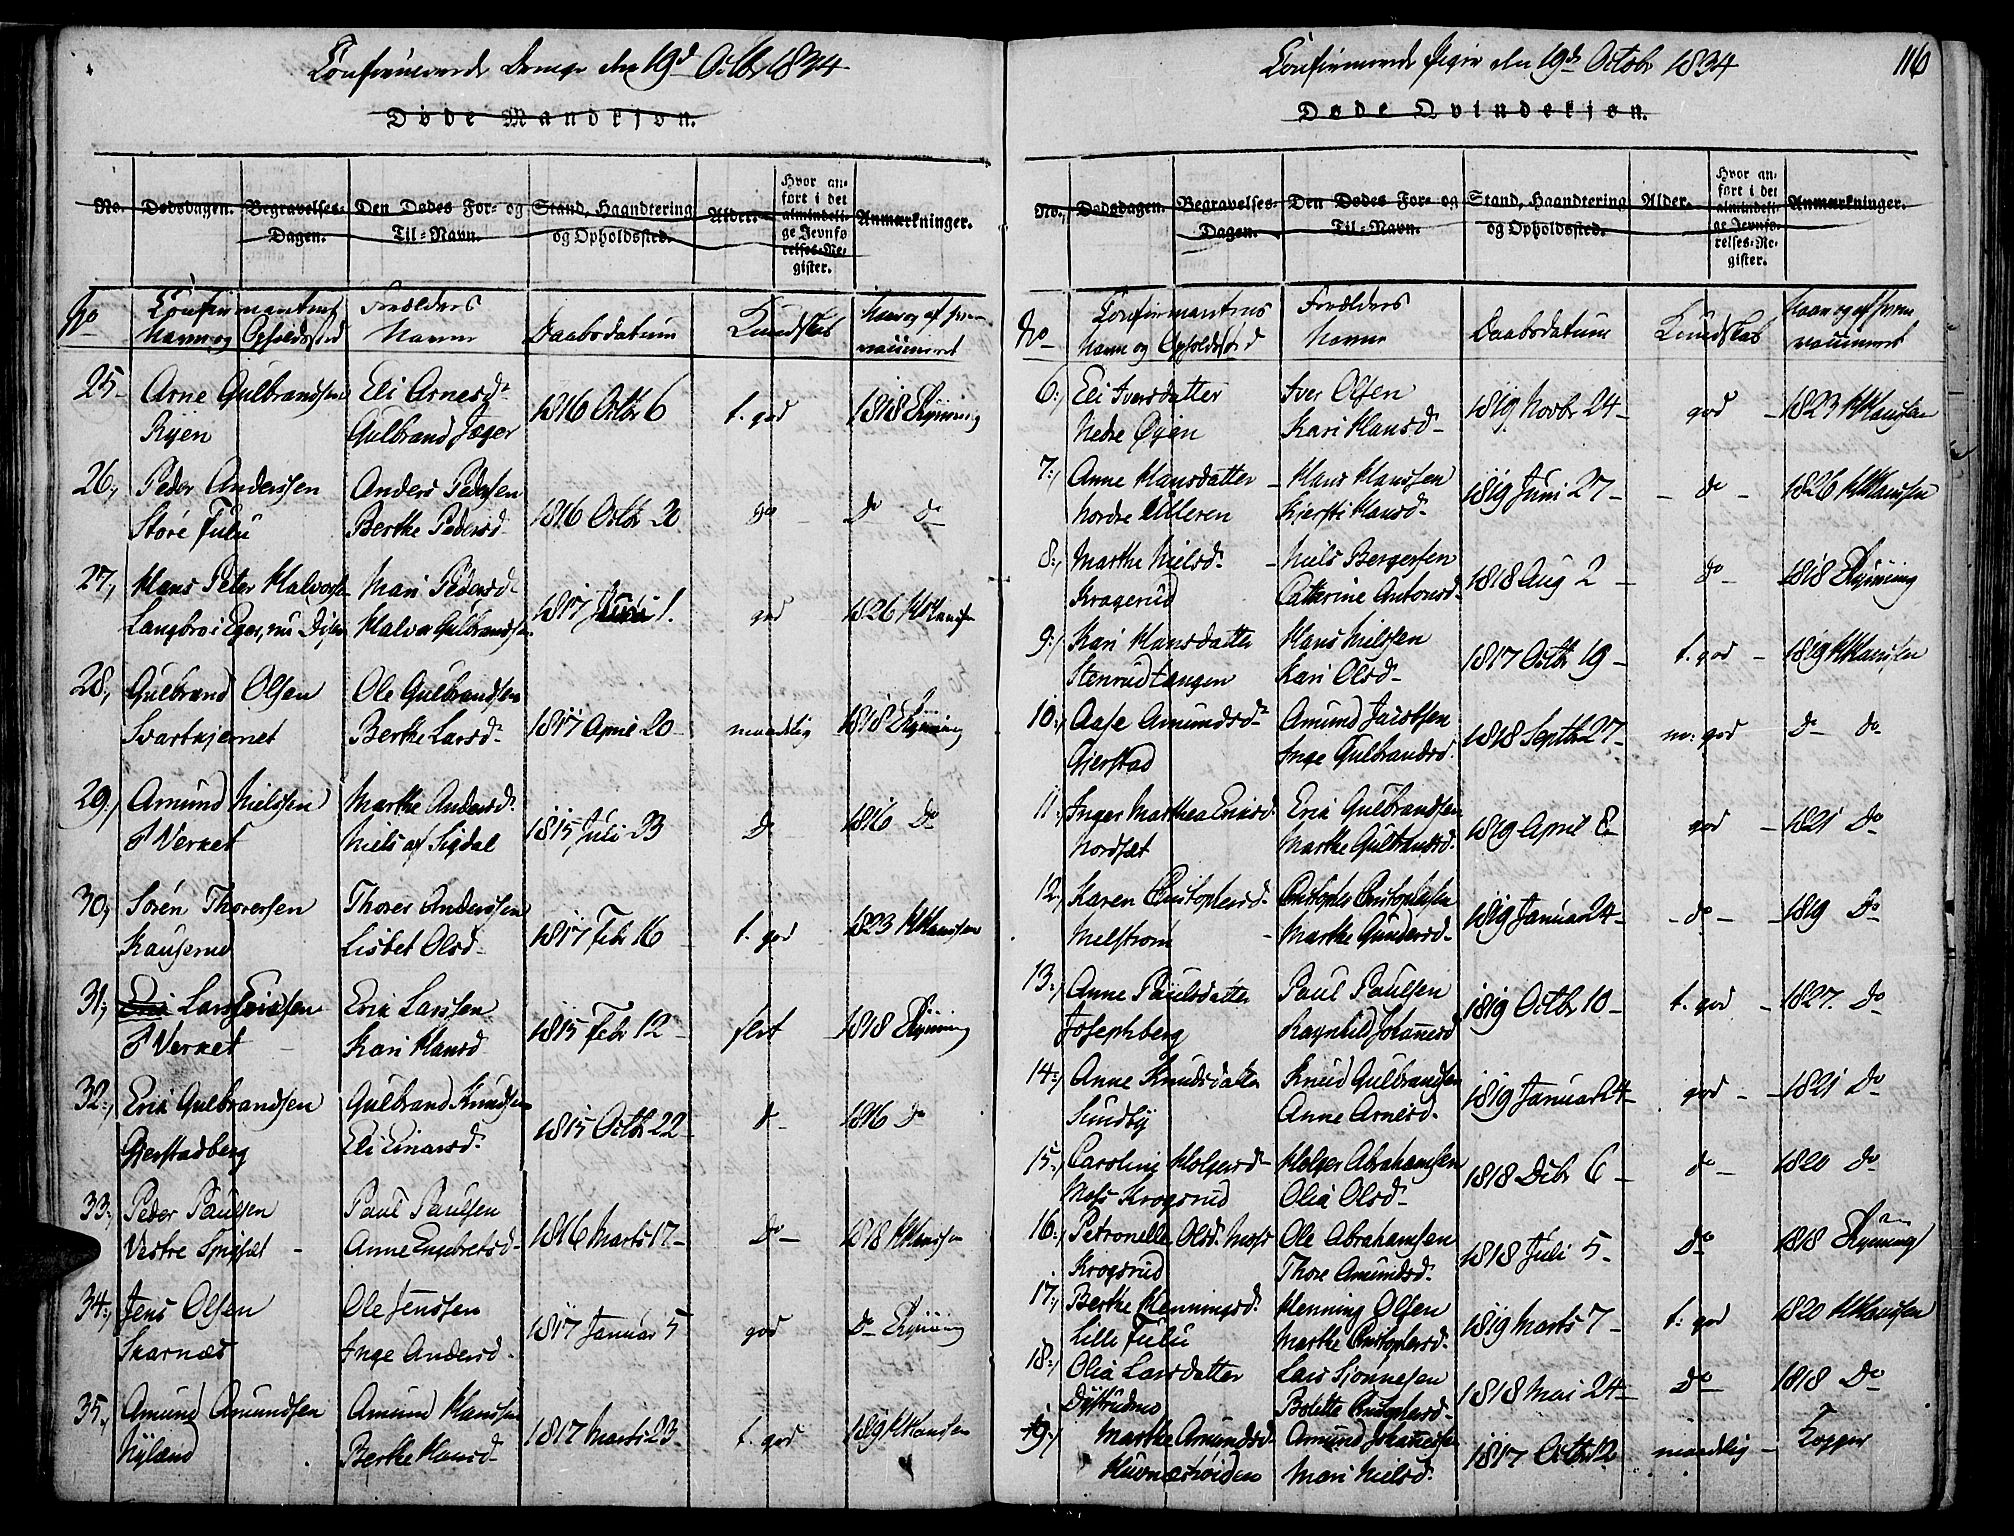 Confirmerede Drenge den 19d Octbr 1834
Døde Mandkjøn.
No. Dødsdagen. Begravelses-Dagen. Den Dødes For- og Til-Navn. Stand, Haandtering og Opholdssted. Alder. Hvor anført i det almindelige Jevnførelses-Register. Anmærkninger.
No Confirmantens Navn og Opholdssted Forældres Navne Daabsdatum Kundskab
25 Arne Gulbrandsen Eli Arnesd. 1816 Octbr 6 t. god 1818
Ryen Gulbrand Jæger
26, Peder Anderssen Anders Pedersen 1816 Octbr 20 do Do do
Store Fulu Berthe Pedersd
27, Hans Peter Halvorsen Mari Pedersd 1817 Juni 1. god 1826 H Hansen
Langbro i Eger, nu Halvor Gulbrandsen
28, Gulbrand Olsen Ole Gulbrandsen 1817 April 20 maadelig 1818
Svartkjernet Berthe Larsd
29, Amund Nielssen Marthe Andersd. 1815 Juli 23 Do 1816 Do
V Verket Niels af Sigdal
30, Søren Thorersen Thorer Anderssen 1817 Febr 16 t. god 1823 H Hanssen
Kauserud Lisbet Olsd
31, Eric Lars Ericssen Eric Larssen 1815 Febr 12 slet 1818
V Verket Kari Hansd
32, Eric Gulbrandsen Gulbrand Knudsen 1815 Octbr 22 d 1816 Do
Gjerstadberg Eli Einarsd.
33, Peder Paulsen Paul Paulsen 1816 Marts 17 Do 1818 H Hanssen
Vestre Anne Engebretsd
34, Jens Olsen Ole Jenssen 1817 Januar 5 god Do
Skarnæs Inge Andersd.
35, Amund Amundsen Amund Hanssen 1817 Marts 23 t. god 1819 H Hansen
Nyland Berthe Hansd
Confirmerede Piger den 19de Octobr 1834 116
Døde Qvindekjøn.
No. Dødsdagen. Begravelses-Dagen. Den Dødes For- og Til-Navn. Stand, Haandtering og Opholdssted. Alder. Hvor anført i det almindelige Jevnførelses-Register. Anmærkninger.
No Confirmantens Navn og Opholdssted Forældres Navne Daabsdatum Kundskab
6, Eli Iversdatter Iver Olsen 1819 Novbr 24 god 1823 H Hansen
Nedre Øyen Kari Hansd
7, Anne Hansdatter Hans Hanssen 1819 Juni 27 do 1826 H Hanssen
Nordre Ulleren Kjersti Hansd
8, Marthe Nielsd. Niels Bergersen 1818 Aug 2 do 1818
Kragerud Cathrine Antonsd.
9, Kari Hansdatter Hans Nielssen 1817 Octbr 19 t. god 1819 H Hanssen
Stenrudtangen Kari Olsd
10, Aase Amundsd Amund Jacobsen 1818 Septbr 27 m: god do do
Gjerstad Inge Gulbrandsd
11, Inger Marthea Ericsd. Eric Gulbrandsen 1819 April 8 god 1821 Do
Nordset Marthe Gulbrandsd.
12, Karen Christophersd Christopher Christophersen 1819 Januar 24 do 1819 Do
Melstrom Marthe Gundersd
13, Anne Paulsdatter Paul Paulsen 1819 Octbr 10 t. god 1827. Do
Josephberg Ragnhild Johannesd
14, Anne Knudsdatter Knud Gulbrandsen 1819 Januar 24 god 1821 Do
Sundby Anne Arnesd
15, Caroline Holgersd Holger Abrahamsen 1818 Decbr 6 do 1820 Do
Mofs Krogsrud Olia Olsd
16, Petronelle Olsd. Mofs Ole Abrahamsen 1818 Juli 5 Do 1818
Krogsrud Thore Amundsd.
17, Berthe Henningsd. Henning Olsen 1819 Marts 7 t. god 1820 H Hanssen
Lille Fulu Marthe Christophersd.
18, Olia Larsdatter Lars Sjonnesen 1818 Mai 24 Do 1818 Do
Dystrudmo Bolette Christophersd.
19, Marthe Amundsd Amund Johannessen 1817 Octbr 12 maadelig Kopper
Mari Nielsd.